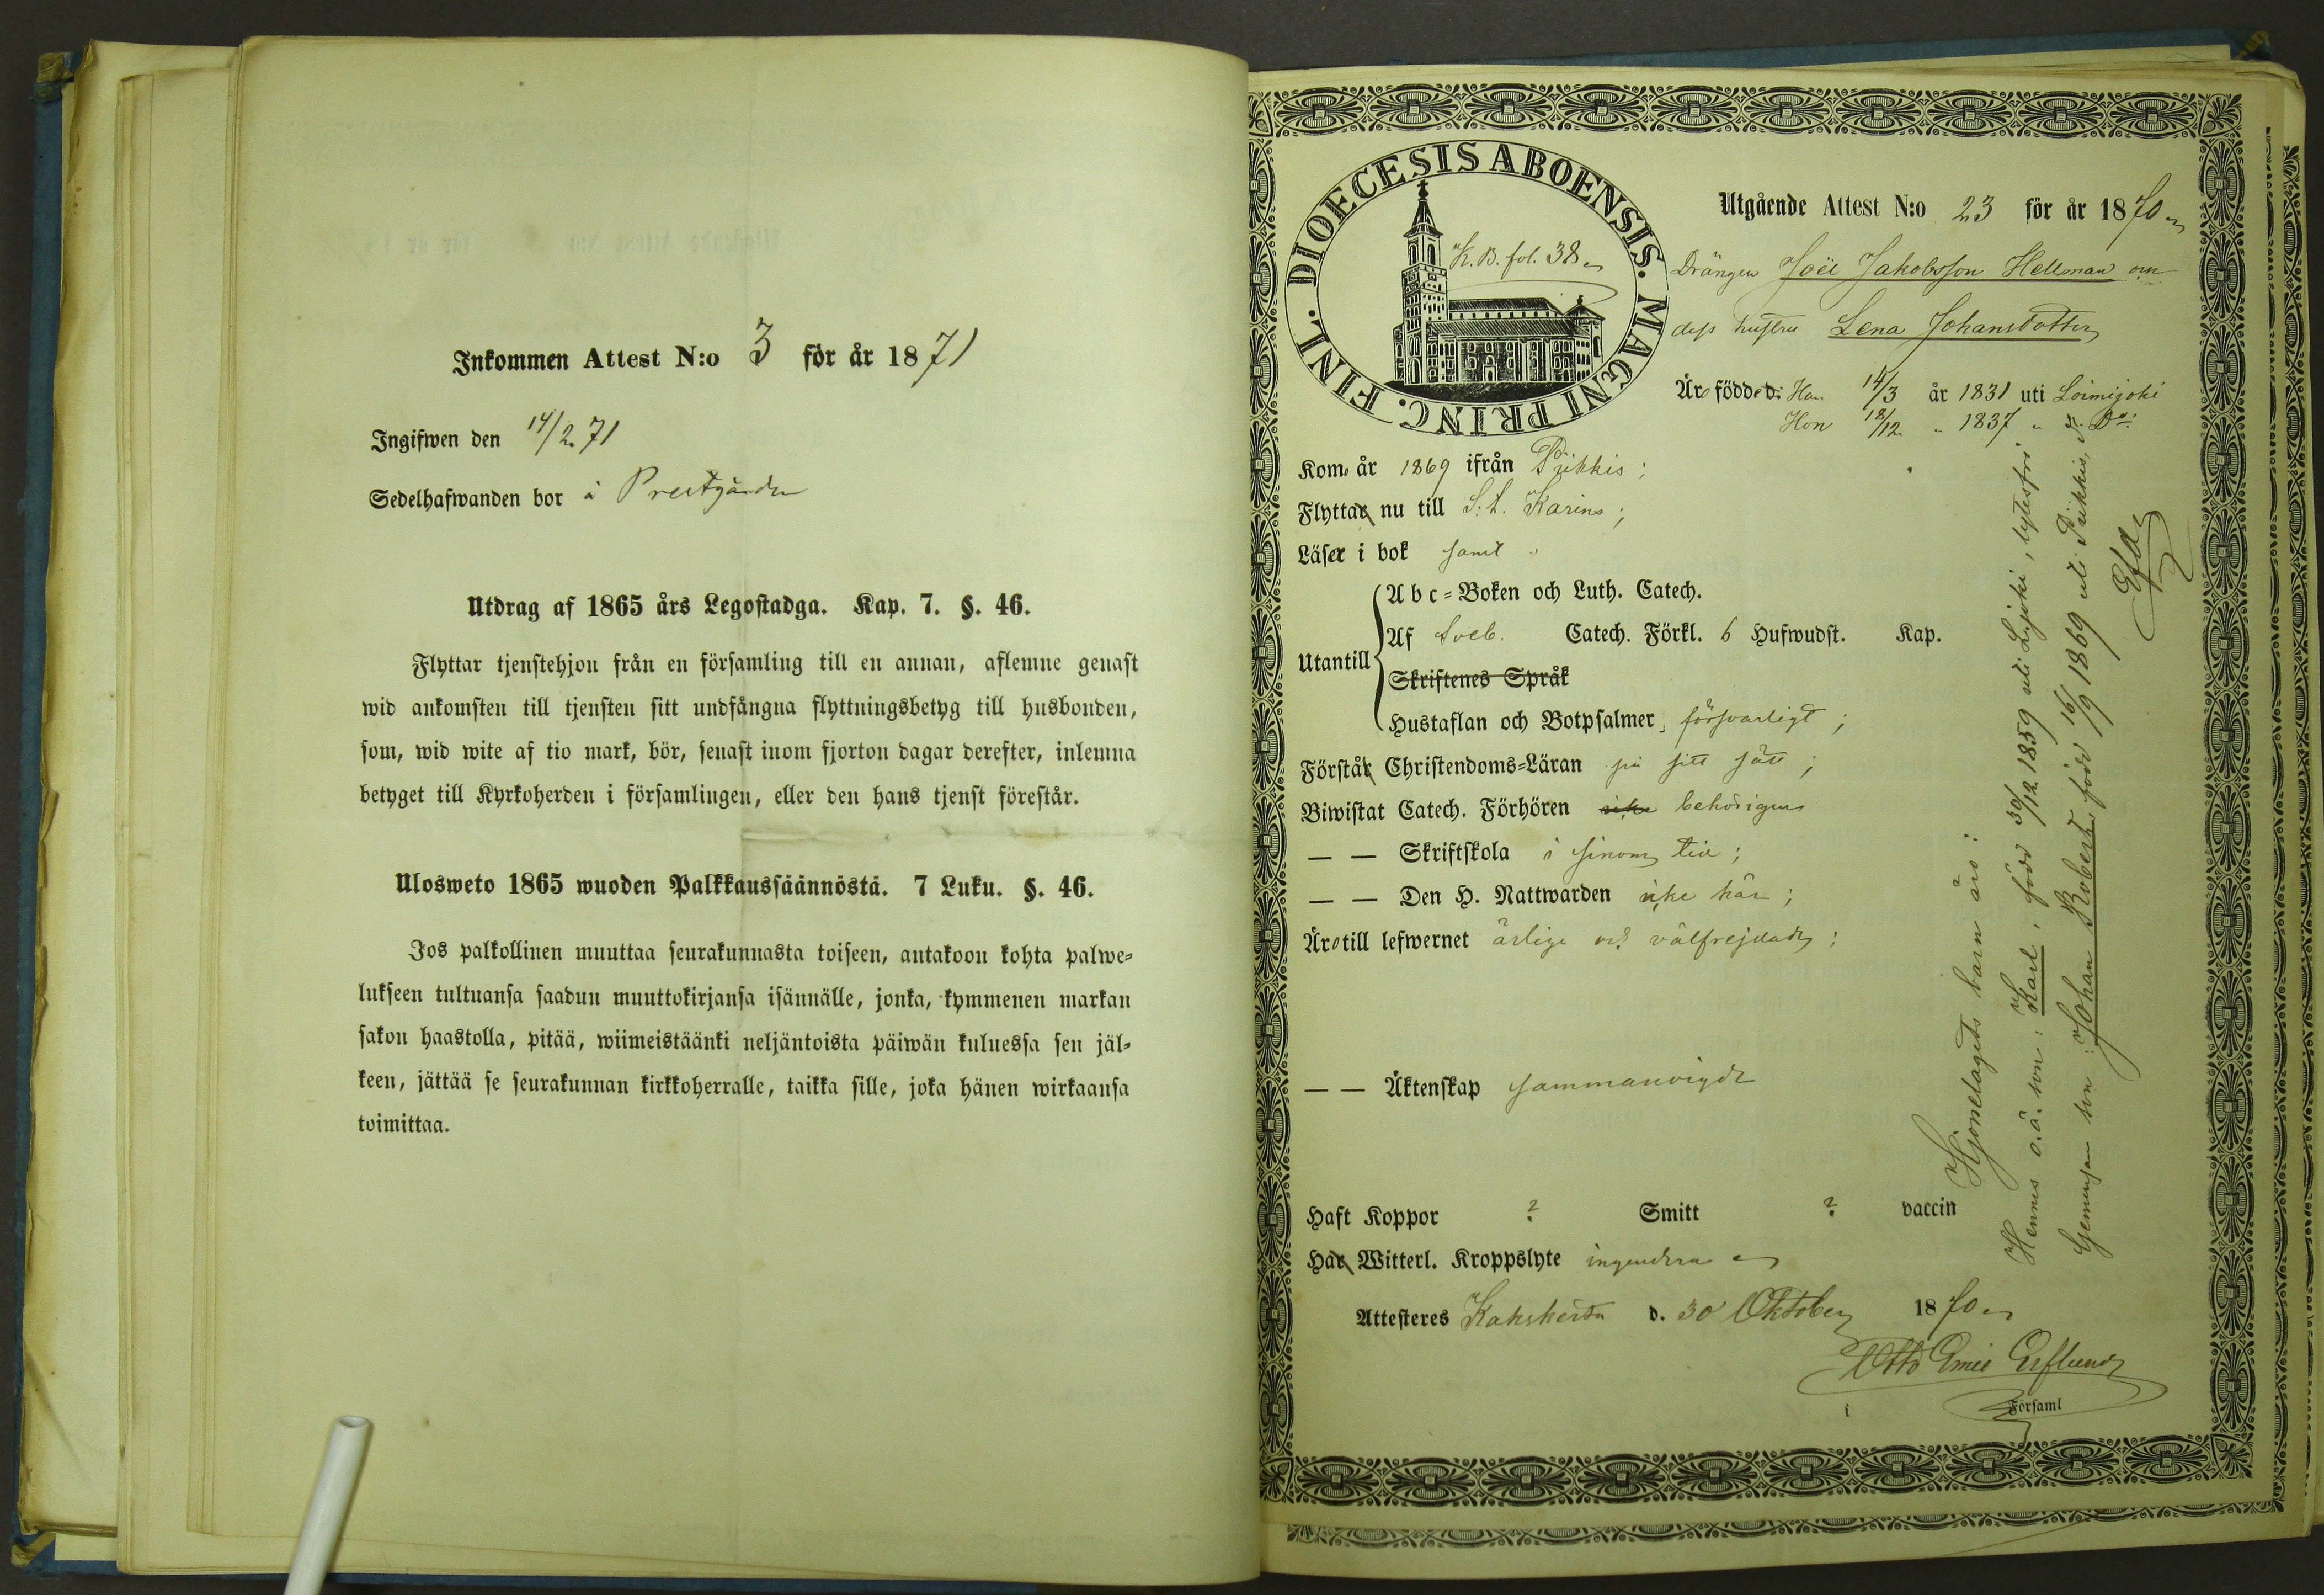 Inkommen Attest N:o 3 för år 1871
Ingifwen den 14/2 71
Sedelhafwanden bor å Prestgården
Utdrag af 1865 års Legostadga. Kap. 7. §. 46.
Flyttar tjenstehjon från en församling till en annan, aflemne genast
wid ankomsten till tjensten sitt undfångna flyttningsbetyg till husbonden,
som, wid wite af tio mark, bör, senast inom fjorton dagar derefter, inlemna
betyget till Kyrkoherden i församlingen, eller den hans tjenst förestår.
Ulosweto 1865 wuoden Palkkaussäännöstä. 7 Luku. §. 46.
Jos palkollinen muuttaa seurakunnasta toiseen, antakoon kohta palwe-
lukseen tultuansa saadun muuttokirjansa isännälle, jonka, kymmenen markan
sakon haastolla, pitää, wiimeistäänki neljäntoista päiwän kuluessa sen jäl-
keen, jättää se seurakunnan kirkkoherralle, taikka sille, joka hänen wirkaansa
toimittaa.
DIOECESIS ABOENSIS. MAGNI PRINC. FINL.
K. B. fol. 38
Utgående Attest N:o 23 för år 1870
Drängen Joël Jakobsson Hellman om
dess hustru Lena Johansdotter
Äro född e d: Han 14/3 år 1831 uti Loimijoki
Hon 18/12 " 1837 " Do:
Kom. år 1869 ifrån Piikkis;
Flyttar nu till S:t. Karins;
Läser i bok samt
Utantill
A b c-Boken och Luth. Catech.
Af Sveb. Catech. Förkl. 6 Hufwudst. Kap.
Skriftenes Språk
Hustaflan och Botpsalmer försvarligt;
Förstår Christendoms-Läran på sitt sätt;
Biwistat Catech. Förhören icke behörigen
— — Skriftskola i sinom tid;
— — Den H. Nattwarden icke här;
Äro till lefwernet ärlige och välfrejdade;
— — Äktenskap sammanvigde
Haft Koppor ? Smitt ? vaccin
Har Witterl. Kroppslyte ingendera
Attesteres Kakskerta d. 30 Oktober 1870
Otto Emil Erflund
i Församl
Hjonelagets barn äro:
Hennes o. ä. son: Karl, född 30/12 1859 uti Lojoki, lytesfri
Gemensam son: Johan Robert, född 16/9 1869 uti Piikkis,